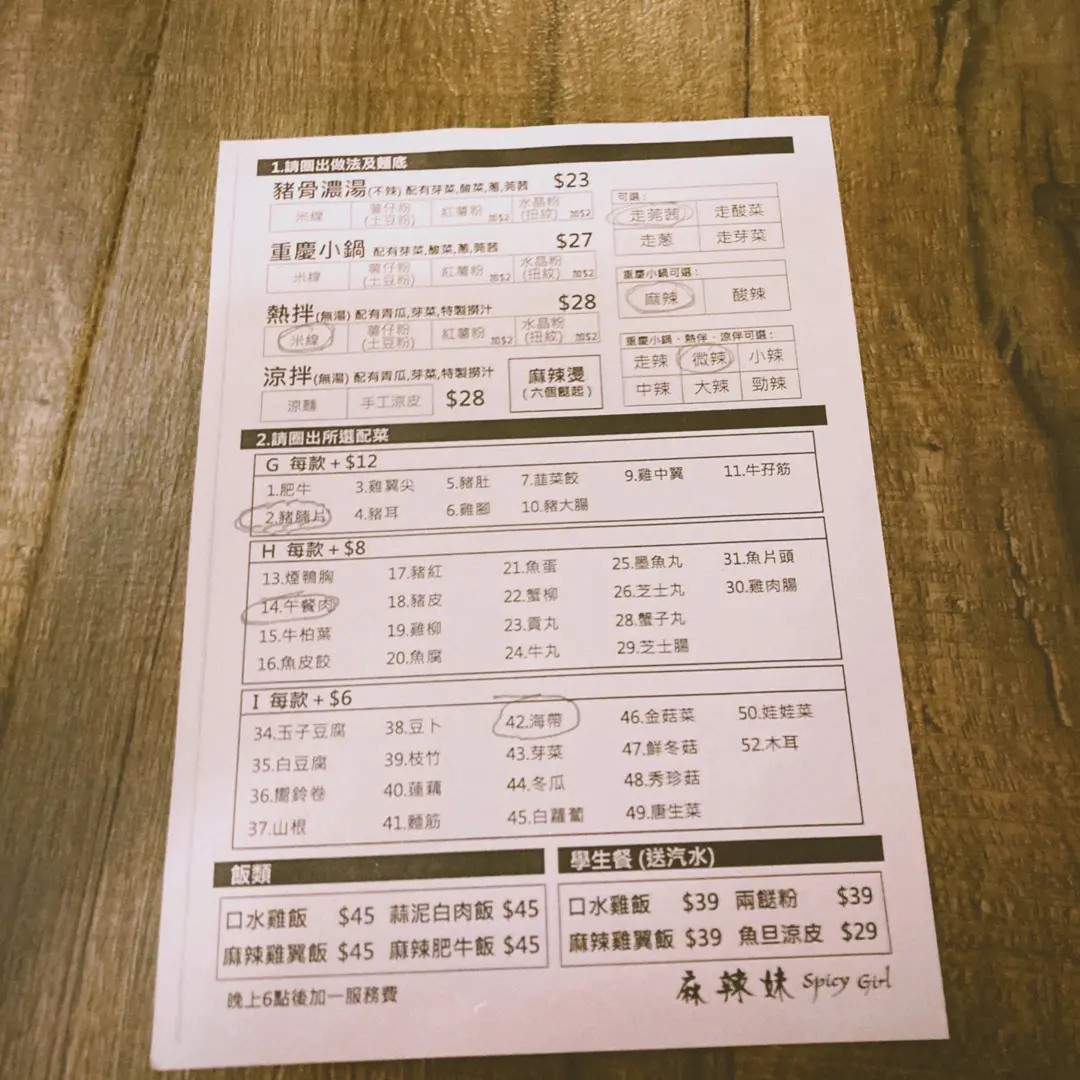 1.請圈出做法及麵底
豬骨濃湯(不辣) 配有芽菜,酸菜,蔥,莞茜 $23
米線 薯仔粉(土豆粉) 紅薯粉 加$2 水晶粉(扭紋) 加$2
重慶小鍋 配有芽菜,酸菜,蔥,莞茜 $27
米線 薯仔粉(土豆粉) 紅薯粉 加$2 水晶粉(扭紋) 加$2
熱拌(無湯) 配有青瓜,芽菜,特製撈汁 $28
米線 薯仔粉(土豆粉) 紅薯粉 加$2 水晶粉(扭紋) 加$2
涼拌(無湯) 配有青瓜,芽菜,特製撈汁
涼麵 手工涼皮 $28
麻辣燙
(六個餸起)
可選:
走莞茜 走酸菜
走蔥 走芽菜
重慶小鍋可選:
麻辣 酸辣
重慶小鍋、熱伴、涼伴可選:
走辣 微辣 小辣
中辣 大辣 勁辣
2.請圈出所選配菜
G 每款+$12
1.肥牛 3.雞翼尖 5.豬肚 7.韮菜餃 9.雞中翼 11.牛孖筋
2.豬腩片 4.豬耳 6.雞腳 10.豬大腸
H 每款+$8
13.煙鴨胸 17.豬紅 21.魚蛋 25.墨魚丸 31.魚片頭
14.午餐肉 18.豬皮 22.蟹柳 26.芝士丸 30.雞肉腸
15.牛柏葉 19.雞柳 23.貢丸 28.蟹子丸
16.魚皮餃 20.魚腐 24.牛丸 29.芝士腸
I 每款+$6
34.玉子豆腐 38.豆卜 42.海帶 46.金菇菜 50.娃娃菜
35.白豆腐 39.枝竹 43.芽菜 47.鮮冬菇 52.木耳
36.嚮鈴卷 40.蓮藕 44.冬瓜 48.秀珍菇
37.山根 41.麵筋 45.白蘿蔔 49.唐生菜
飯類
口水雞飯 $45 蒜泥白肉飯 $45
麻辣雞翼飯 $45 麻辣肥牛飯 $45
學生餐 (送汽水)
口水雞飯 $39 兩餸粉 $39
麻辣雞翼飯 $39 魚旦涼皮 $29
晚上6點後加一服務費
麻辣妹 Spicy Girl